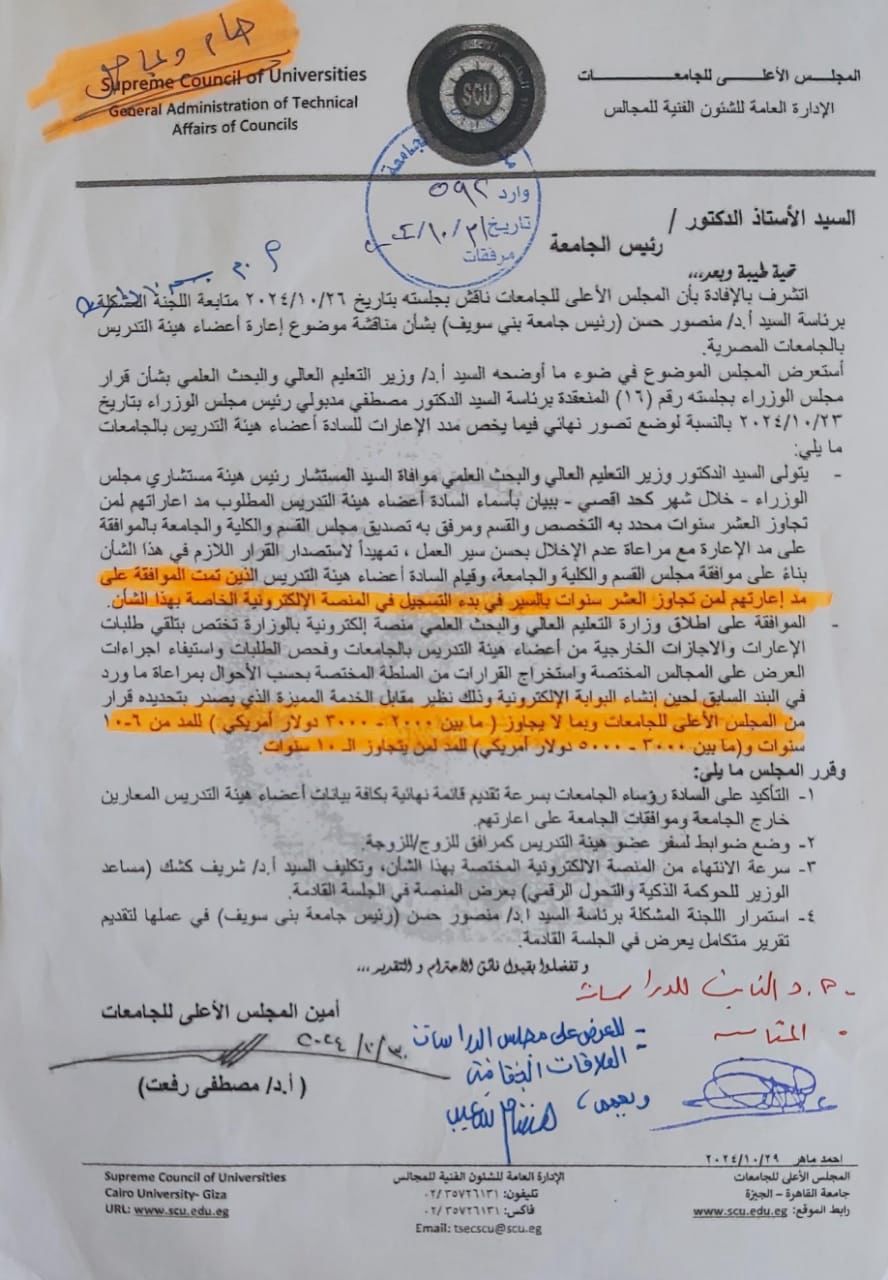 هام وعاجل
Supreme Council of Universities
General Administration of Technical
Affairs of Councils
SCU
المجلس الأعلى للجامعات
الإدارة العامة للشئون الفنية للمجالس
وارد ٥٩٢
تاريخ ٣١/١٠/
مرفقات
السيد الأستاذ الدكتور /
رئيس الجامعة
تحية طيبة وبعد،،،
اتشرف بالإفادة بأن المجلس الأعلى للجامعات ناقش بجلسته بتاريخ ٢٠٢٤/١٠/٢٦ متابعة اللجنة المشكلة
برئاسة السيد أ.د/ منصور حسن (رئيس جامعة بني سويف) بشأن مناقشة موضوع إعارة أعضاء هيئة التدريس
بالجامعات المصرية.
أستعرض المجلس الموضوع في ضوء ما أوضحه السيد أ.د/ وزير التعليم العالي والبحث العلمي بشأن قرار
مجلس الوزراء بجلسته رقم (١٦) المنعقدة برئاسة السيد الدكتور مصطفي مدبولي رئيس مجلس الوزراء بتاريخ
٢٠٢٤/١٠/٢٣ بالنسبة لوضع تصور نهائي فيما يخص مدد الإعارات للسادة أعضاء هيئة التدريس بالجامعات
ما يلي:
- يتولى السيد الدكتور وزير التعليم العالي والبحث العلمي موافاة السيد المستشار رئيس هيئة مستشاري مجلس
الوزراء - خلال شهر كحد اقصي - ببيان بأسماء السادة أعضاء هيئة التدريس المطلوب مد اعاراتهم لمن
تجاوز العشر سنوات محدد به التخصص والقسم ومرفق به تصديق مجلس القسم والكلية والجامعة بالموافقة
على مد الإعارة مع مراعاة عدم الإخلال بحسن سير العمل ، تمهيداً لاستصدار القرار اللازم في هذا الشأن
بناءً على موافقة مجلس القسم والكلية والجامعة، وقيام السادة أعضاء هيئة التدريس الذين تمت الموافقة على
مد إعارتهم لمن تجاوز العشر سنوات بالسير في بدء التسجيل في المنصة الإلكترونية الخاصة بهذا الشأن.
- الموافقة على اطلاق وزارة التعليم العالي والبحث العلمي منصة إلكترونية بالوزارة تختص بتلقي طلبات
الإعارات والاجازات الخارجية من أعضاء هيئة التدريس بالجامعات وفحص الطلبات واستيفاء اجراءات
العرض على المجالس المختصة واستخراج القرارات من السلطة المختصة بحسب الأحوال بمراعاة ما ورد
في البند السابق لحين إنشاء البوابة الإلكترونية وذلك نظير مقابل الخدمة المميزة الذي يصدر بتحديده قرار
من المجلس الأعلى للجامعات وبما لا يجاوز ( ما بين ٢٠٠٠ - ٣٠٠٠ دولار أمريكي ) للمد من ٦-١٠
سنوات و(ما بين ٣٠٠٠ - ٥٠٠٠ دولار أمريكي) للمد لمن يتجاوز الـ ١٠ سنوات.
وقرر المجلس ما يلي:
١- التأكيد على السادة رؤساء الجامعات بسرعة تقديم قائمة نهائية بكافة بيانات أعضاء هيئة التدريس المعارين
خارج الجامعة وموافقات الجامعة على اعارتهم.
٢- وضع ضوابط لسفر عضو هيئة التدريس كمرافق للزوج/للزوجة.
٣- سرعة الانتهاء من المنصة الالكترونية المختصة بهذا الشأن، وتكليف السيد أ.د/ شريف كشك (مساعد
الوزير للحوكمة الذكية والتحول الرقمي) بعرض المنصة في الجلسة القادمة.
٤- استمرار اللجنة المشكلة برئاسة السيد ا.د/ منصور حسن (رئيس جامعة بنى سويف) في عملها لتقديم
تقرير متكامل يعرض في الجلسة القادمة.
وتفضلوا بقبول فائق الاحترام و التقدير ،،،
أ.د النائب للدراسات
- للعرض على مجلس الدراسات
العلاقات الثقافية
أمين المجلس الأعلى للجامعات
٢٠٢٤/١٠/٣٠
( أ.د/ مصطفى رفعت)
احمد ماهر ٢٠٢٤/١٠/٢٩
المجلس الأعلى للجامعات
جامعة القاهرة - الجيزة
رابط الموقع: www.scu.edu.eg
الإدارة العامة للشئون الفنية للمجالس
تليفون: ٠٢/٣٥٧٢٦١٣١
فاكس: ٠٢/٣٥٧٢٦١٣١
Email: tsecscu@scu.eg
Supreme Council of Universities
Cairo University- Giza
URL: www.scu.edu.eg